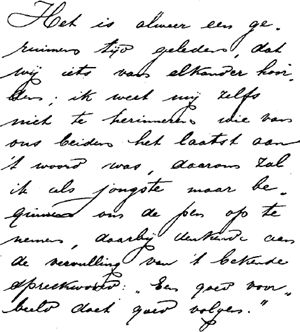 Het is alweer een ge-
ruimen tijd geleden, dat
wij iets van elkander hoor-
den; ik weet mij zelfs
niet te herinneren wie van
ons beiden het laatst aan
't woord was, daarom zal
ik als jongste maar be-
ginnen om de pen op te
nemen, daarbij denkende aan
de vervulling van 't bekende
spreekwoord: „Een goed voor-
beeld doet goed volgen."